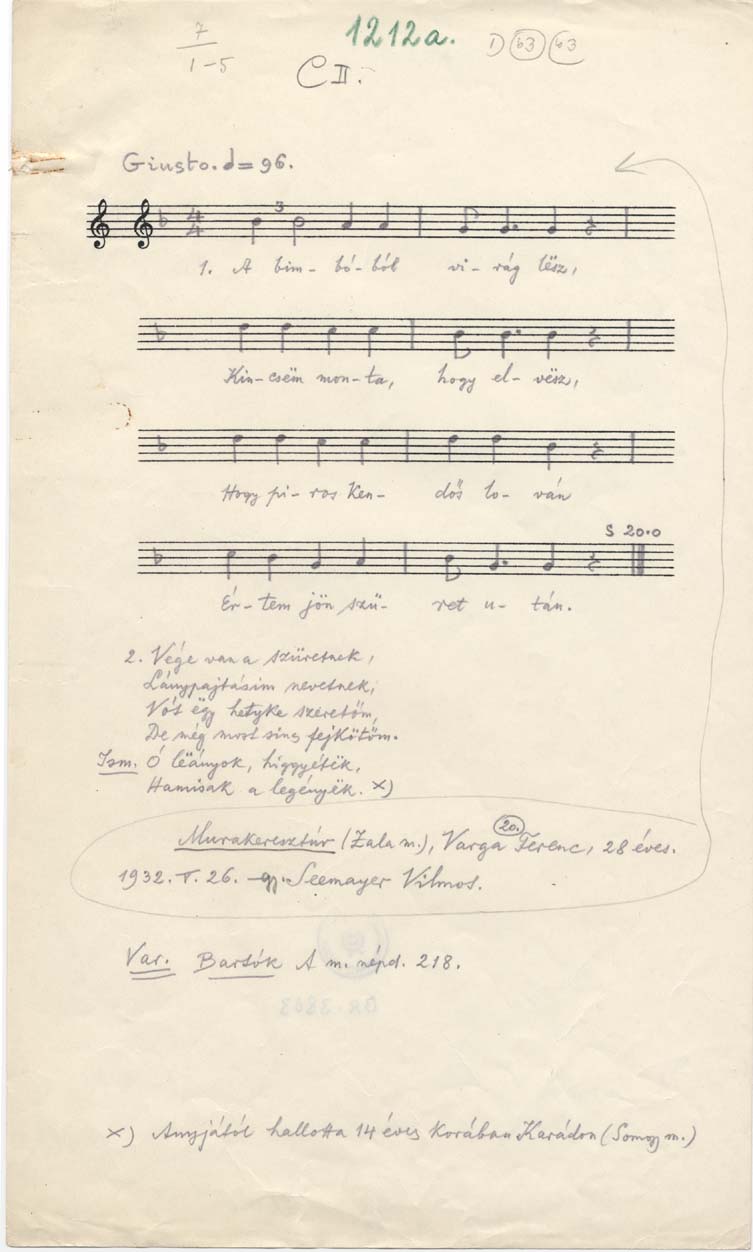 7
1-5
1212a.
1) 63 63
C II.
Giusto. d = 96.
4
4
3
1. A bim- bó- ból vi- rág lësz,
Kin- csëm mon- ta, hogy el- vësz,
Hogy pi- ros ken- dős lo- ván
S 20.0
Ér- tem jön szü- ret u- tán.
2. Vége van a szüretnek,
Lánypajtásim nevetnek,
Vót ëgy hetyke szeretőm,
De még most sincs fejkötőm.
Ism. Ó lëányok, higgyétëk,
Hamisak a legényëk. x)
20.
Murakeresztúr (Zala m.), Varga Ferenc, 28 éves.
1932. V. 26. gy. Seemayer Vilmos.
Var. Bartók A m. népd. 218.
x) Anyjától hallotta 14 éves korában Karádon (Somogy m.)